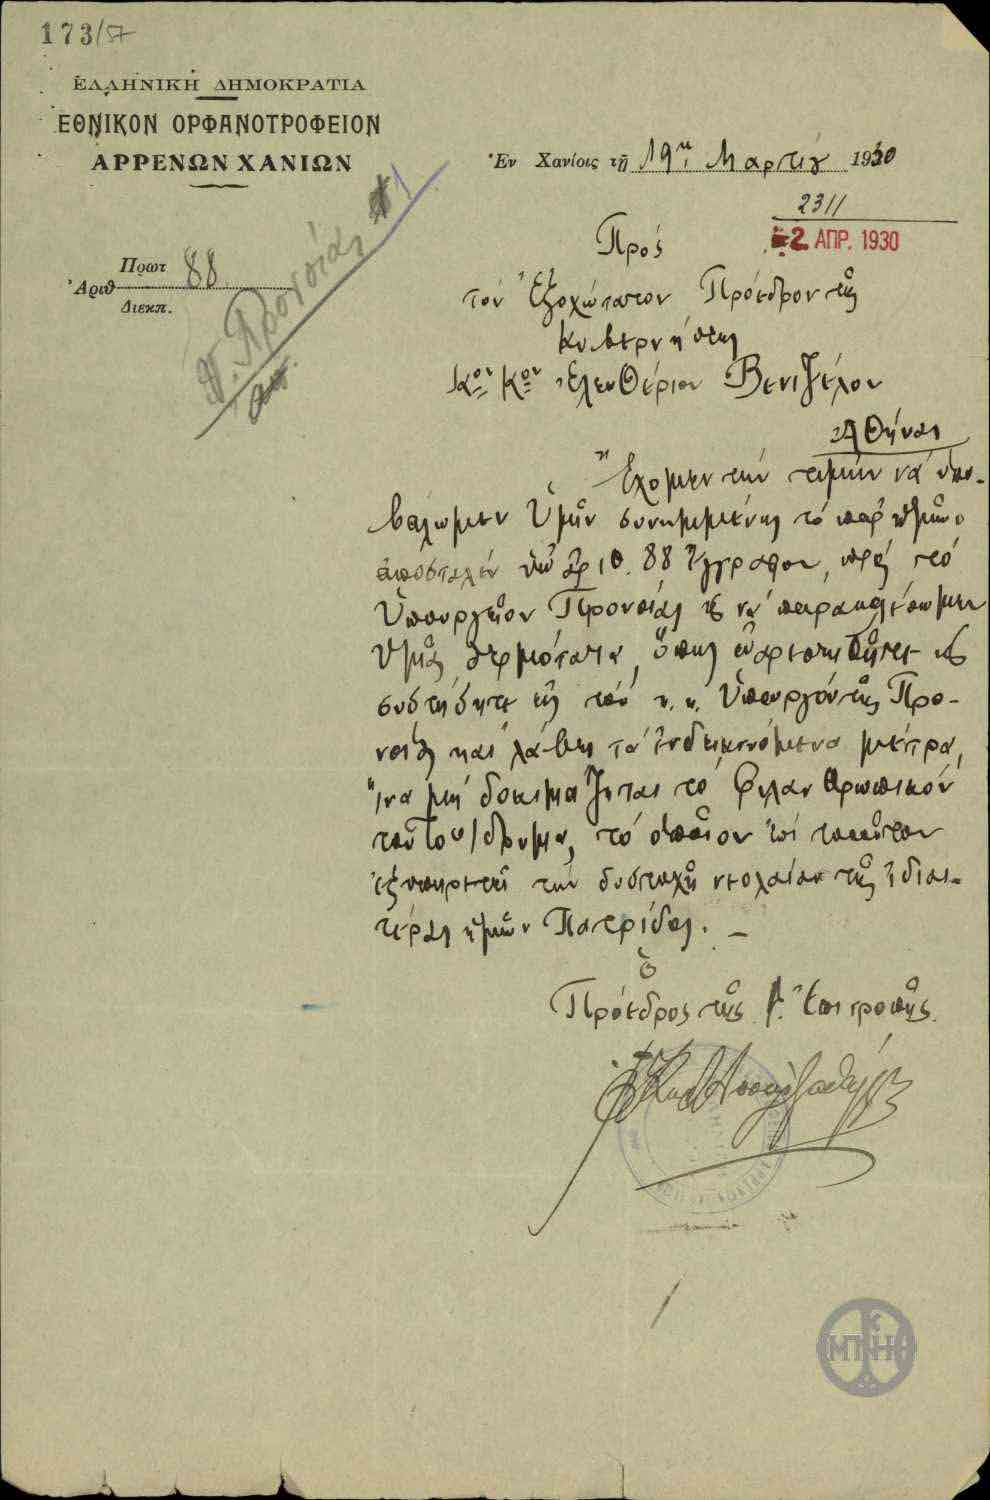 173/57
ΕΛΛΗΝΙΚΗ ΔΗΜΟΚΡΑΤΙΑ
ΕΘΝΙΚΟΝ ΟΡΦΑΝΟΤΡΟΦΕΙΟΝ
ΑΡΡΕΝΩΝ ΧΑΝΙΩΝ
Ἐν Χανίοις τῇ 19ῃ Μαρτίου 1930
2311
2 ΑΠΡ. 1930
Ἀριθ Πρωτ 88
Διεκπ.
Προνοίας
Πρός
τόν Ἐξοχώτατον Πρόεδρον τῆς
Κυβερνήσεως
Κον Κον Ἐλευθέριον Βενιζέλον
Ἀθήνας
Ἔχομεν τήν τιμήν νά ὑπο-
βάλωμεν Ὑμῖν συνημμένως τό παρ' ἡμῶν
ἀποσταλέν ὑπ' ἀριθ. 88 ἔγγραφον, πρός τό
Ὑπουργεῖον Προνοίας καί νά παρακαλέσωμεν
Ὑμᾶς θερμότατα, ὅπως εὐαρεστηθῆτε καί
συστήσητε εἰς τόν κ. κ. Ὑπουργόν τῆς Προ-
νοίας καί λάβῃ τά ἐνδεικνυόμενα μέτρα,
ἵνα μή δοκιμάζηται τό φιλανθρωπικόν
τοῦτο ἵδρυμα, τό ὁποῖον ἐπί τοσοῦτον
ἐξυπηρετεῖ τήν δυστυχῆ νεολαίαν τῆς ἰδιαι-
τέρας ἡμῶν Πατρίδος. –
Ὁ
Πρόεδρος τῆς Ἐπιτροπῆς
ΜΠΗ